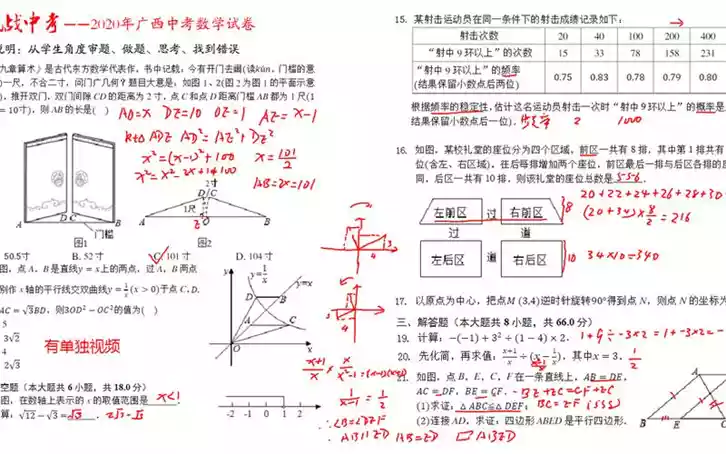 战中考——2020年广西中考数学试卷
说明：从学生角度审题、做题、思考、找到错误
九章算术》是古代东方数学代表作，书中记载，今有开门去阃(读kǔn，门槛的意
)一尺，不合二寸，问门广几何？题目大意是：如图1、2(图2为图1的平面示意
)，推开双门，双门间隙CD的距离为2寸，点C和点D距离门槛AB都为1尺(1
=10寸)，则AB的长是(
AO=x DZ=10 OZ=1 AZ=x-1
Rt△ADZ AD²=AZ²+DZ²
x²=(x-1)²+100 x=101/2
x²=x²-2x+1+100
AB=2x=101
2寸
D C
1尺
A O B
A D C B
门槛
图1
图2
50.5寸 B. 52寸 C. 101寸 D. 104寸
图，点A、B是直线y=x上的两点，过A、B两点
别作x轴的平行线交双曲线y=1/x(x>0)于点C、D.
AC=√3BD，则3OD²-OC²的值为( )
5
3√2
4
2√3
有单独视频
y
y=1/x
y=x
D B
A C
O x
空题（本大题共6小题，共18.0分）
图，在数轴上表示的x的取值范围是 x<1
算：√12-√3=√3. 2√3-√3
-2 0 1
15. 某射击运动员在同一条件下的射击成绩记录如下：
射击次数 20 40 100 200 400
“射中9环以上”的次数 15 33 78 158 231
“射中9环以上”的频率 0.75 0.83 0.78 0.79 0.80
(结果保留小数点后两位)
根据频率的稳定性，估计这名运动员射击一次时“射中9环以上”的概率是
结果保留小数点后一位).
2 1000
16. 如图，某校礼堂的座位分为四个区域，前区一共有8排，其中第1排共有
位(含左、右区域)，往后每排增加两个座位，前区最后一排与后区各排的座
同，后区一共有10排，则该礼堂的座位总数是 556.
20+22+24+26+28+30
(20+34)×8/2=216
左前区 过 右前区 8
过 道
左后区 道 右后区 10 34×10=340
17. 以原点为中心，把点M (3,4)逆时针旋转90°得到点N，则点N的坐标为
三、解答题（本大题共8小题，共66.0分）
19. 计算：-(-1)+3²÷(1-4)×2. 1+9÷-3×2=1+-3×2=-
20. 先化简，再求值：x+1/x÷(x-1/x)，其中x=3. 1/2
x+1/x × x/x²-1=(x-1)(x+1)
1/x-1=1/2
21. 如图，点B，E，C，F在一条直线上，AB=DE，
AC=DF，BE=CF.
(1)求证：△ABC≌△DEF；
(2)连接AD，求证：四边形ABED是平行四边形.